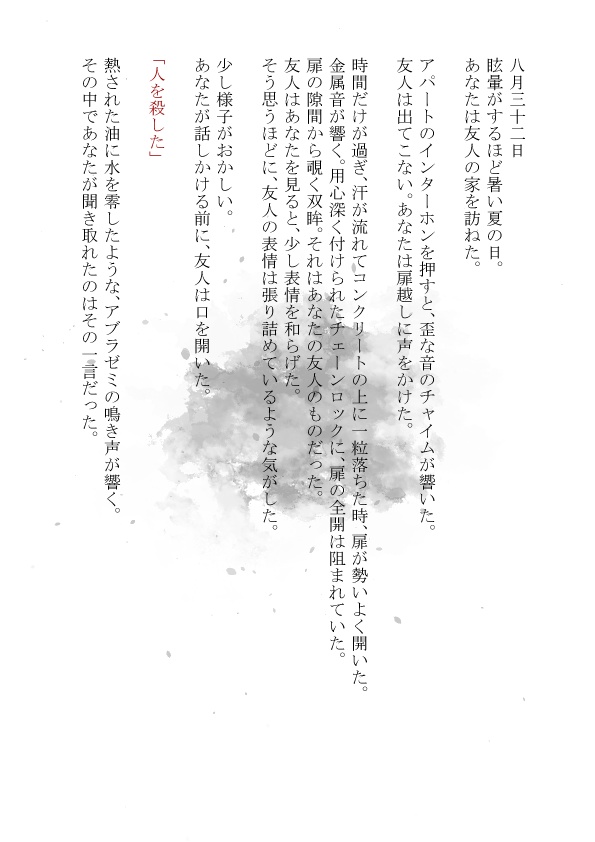 八月三十二日
眩暈がするほど暑い夏の日。
あなたは友人の家を訪ねた。
アパートのインターホンを押すと、歪な音のチャイムが響いた。
友人は出てこない。あなたは扉越しに声をかけた。
時間だけが過ぎ、汗が流れてコンクリートの上に一粒落ちた時、扉が勢いよく開いた。
金属音が響く。用心深く付けられたチェーンロックに、扉の全開は阻まれていた。
扉の隙間から覗く双眸。それはあなたの友人のものだった。
友人はあなたを見ると、少し表情を和らげた。
そう思うほどに、友人の表情は張り詰めているような気がした。
少し様子がおかしい。
あなたが話しかける前に、友人は口を開いた。
「人を殺した」
熱された油に水を零したような、アブラゼミの鳴き声が響く。
その中であなたが聞き取れたのはその一言だった。